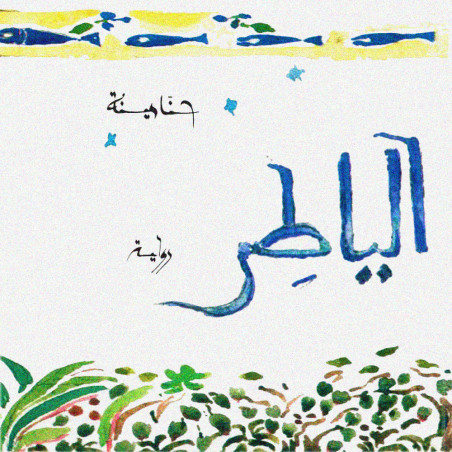 حنّا مينة
الياطر
رواية